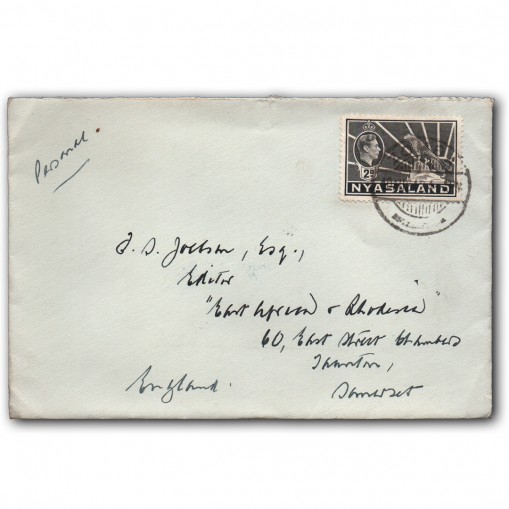 Personal.
2D
NYASALAND
F. S. Joelson, Esq.,
Editor
"East Africa & Rhodesia"
60, East Street Chambers
Taunton,
Somerset
England.